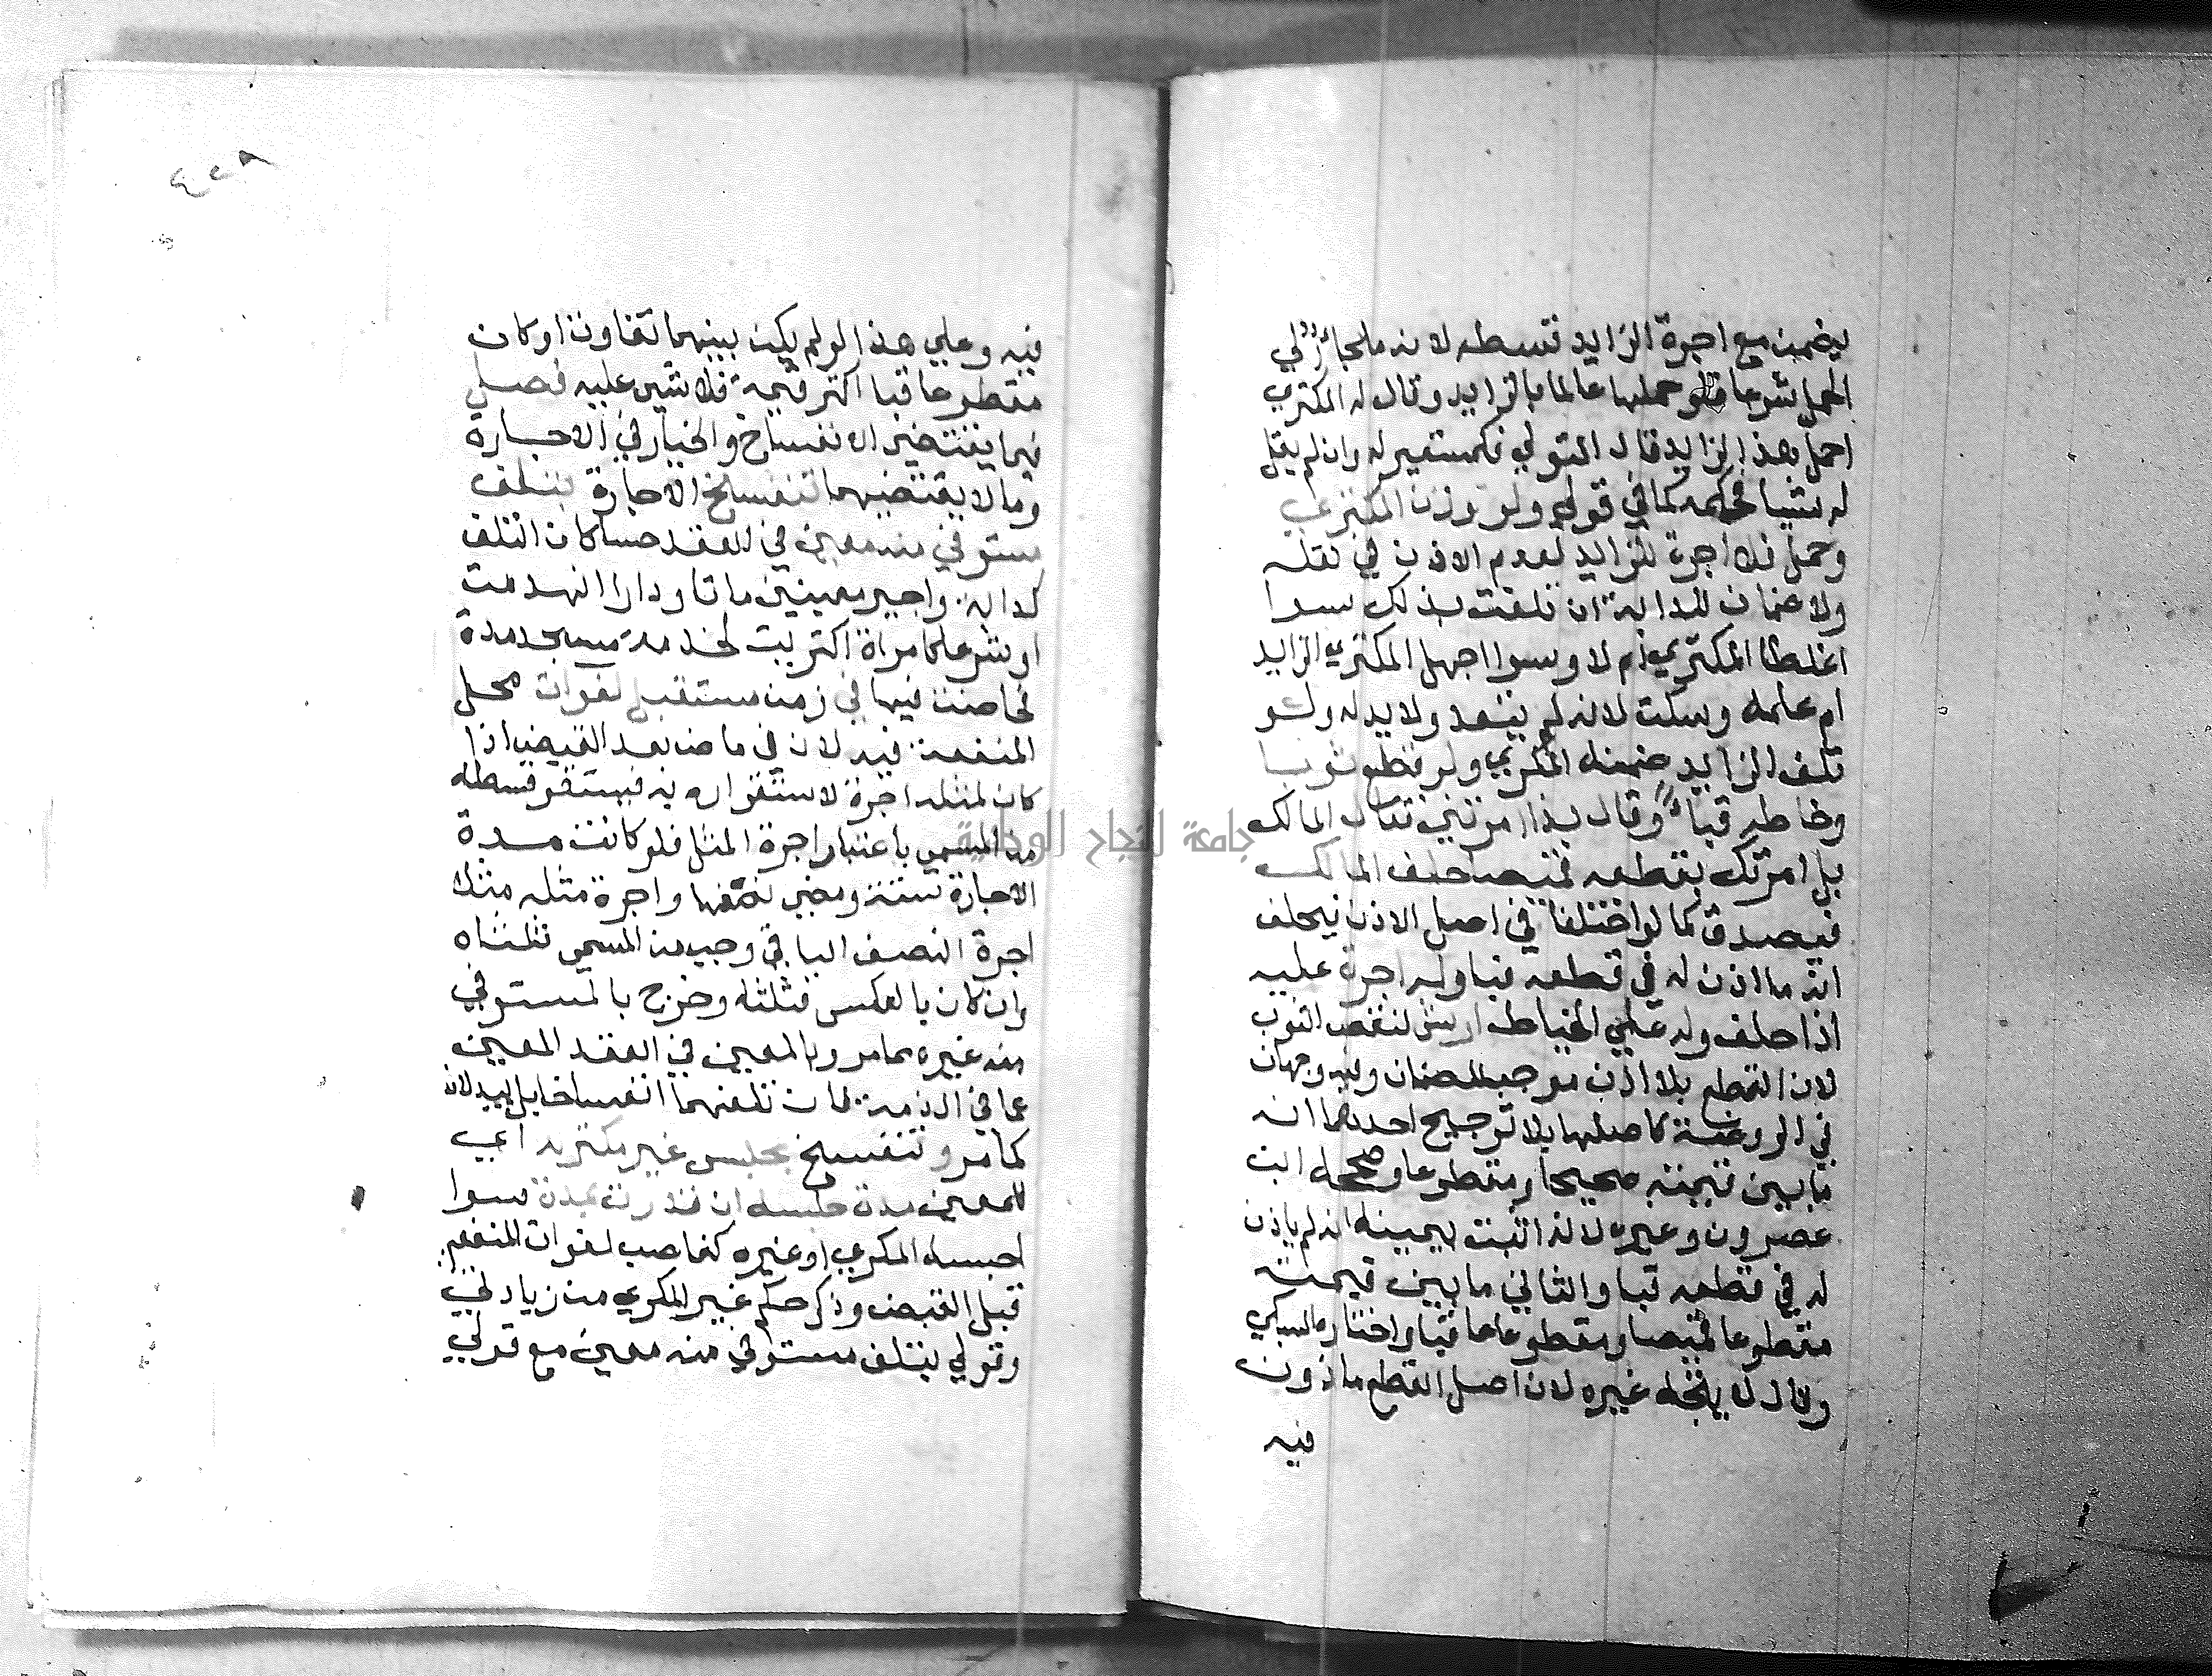 يضمن مع اجرة الزايد قسطه لانه ملجاء الي
الحمل شرعا فلو حملها عالما بالزايد وقال له المكتري
احمل هذا الزايد قال المتولي فكمستعير له وان لم يقل
له شيا فحكمه كما في قولي ولو وزن المكتري
وحمل فلا اجرة للزايد لعدم الاذن في نقله
ولا ضمان للدابة ان تلفت بذلك سوا
اغلط المكتري ام لا وسوا اجهل المكتري الزايد
ام علمه وسكت لانه لم يتعد ولا يد له ولو
تلف الزايد ضمنه المكري ولو قطع ثوبا
وخاطه قباء وقال بذا امرتني فقال المالك
بل امرتك بقطعه قميصا حلف المالك
فيصدق كما لو اختلفا في اصل الاذن فيحلف
انه ما اذن له في قطعه قبا ولا اجرة عليه
اذا حلف وله علي الخياط ارش لنقص الثوب
لان القطع بلا اذن موجب للضمان وفيه وجهان
في الروضة كاصلها بلا ترجيح احدهما انه
ما بين قيمته صحيحا ومقطوعا وصححه ابن
عصرون وغيره لانه اثبت بيمينه انه لم ياذن
له في قطعه قبا والثاني ما بين قيمته
مقطوعا قميصا ومقطوعا قبا واختاره السبكي
وقال لا يتجه غيره لان اصل القطع ماذون
فيه
فيه وعلي هذا لو لم يكن بينهما تفاوت او كان
مقطوعا قبا اكثر قيمة فلا شي عليه فصل
فيما يقتضي الانفساخ والخيار في الاجارة
وما لا يقتضيهما تنفسخ الاجارة بتلف
مستوفي منه معين في العقد حسا كان التلف
كدابة واجير معينين ماتا ودار انهدمت
او شرعا كامراة اكتريت لخدمة مسجد مدة
فحاضت فيها في زمن مستقبل لفوات محل
المنفعة فيه لا في ماض بعد القبض اذا
كان لمثله اجرة لاستقراره به فيستقر قسطه
من المسمي باعتبار اجرة المثل فلو كانت مدة
الاجارة سنة ومضي نصفها واجرة مثله مثلا
اجرة النصف الباقي وجب من المسمي ثلثاه
وان كان بالعكس فثلثه وخرج بالمستوفي
منه غيره مما مر وبالمعين في العقد المعين
عما في الذمة فان تلفهما انفساخا بل يبدلان
كما مر وتنفسخ بحبس غير مكتريه اي
للمعين مدة حبسه ان قدرت بمدة سوا
احبسه المكري او غيره كغاصب لفوات المنفعة
قبل القبض وذكر حكم غير المكري من زيادتي
وقولي بتلف مستوفي منه معين مع قولي
جامعة النجاح الوطنية